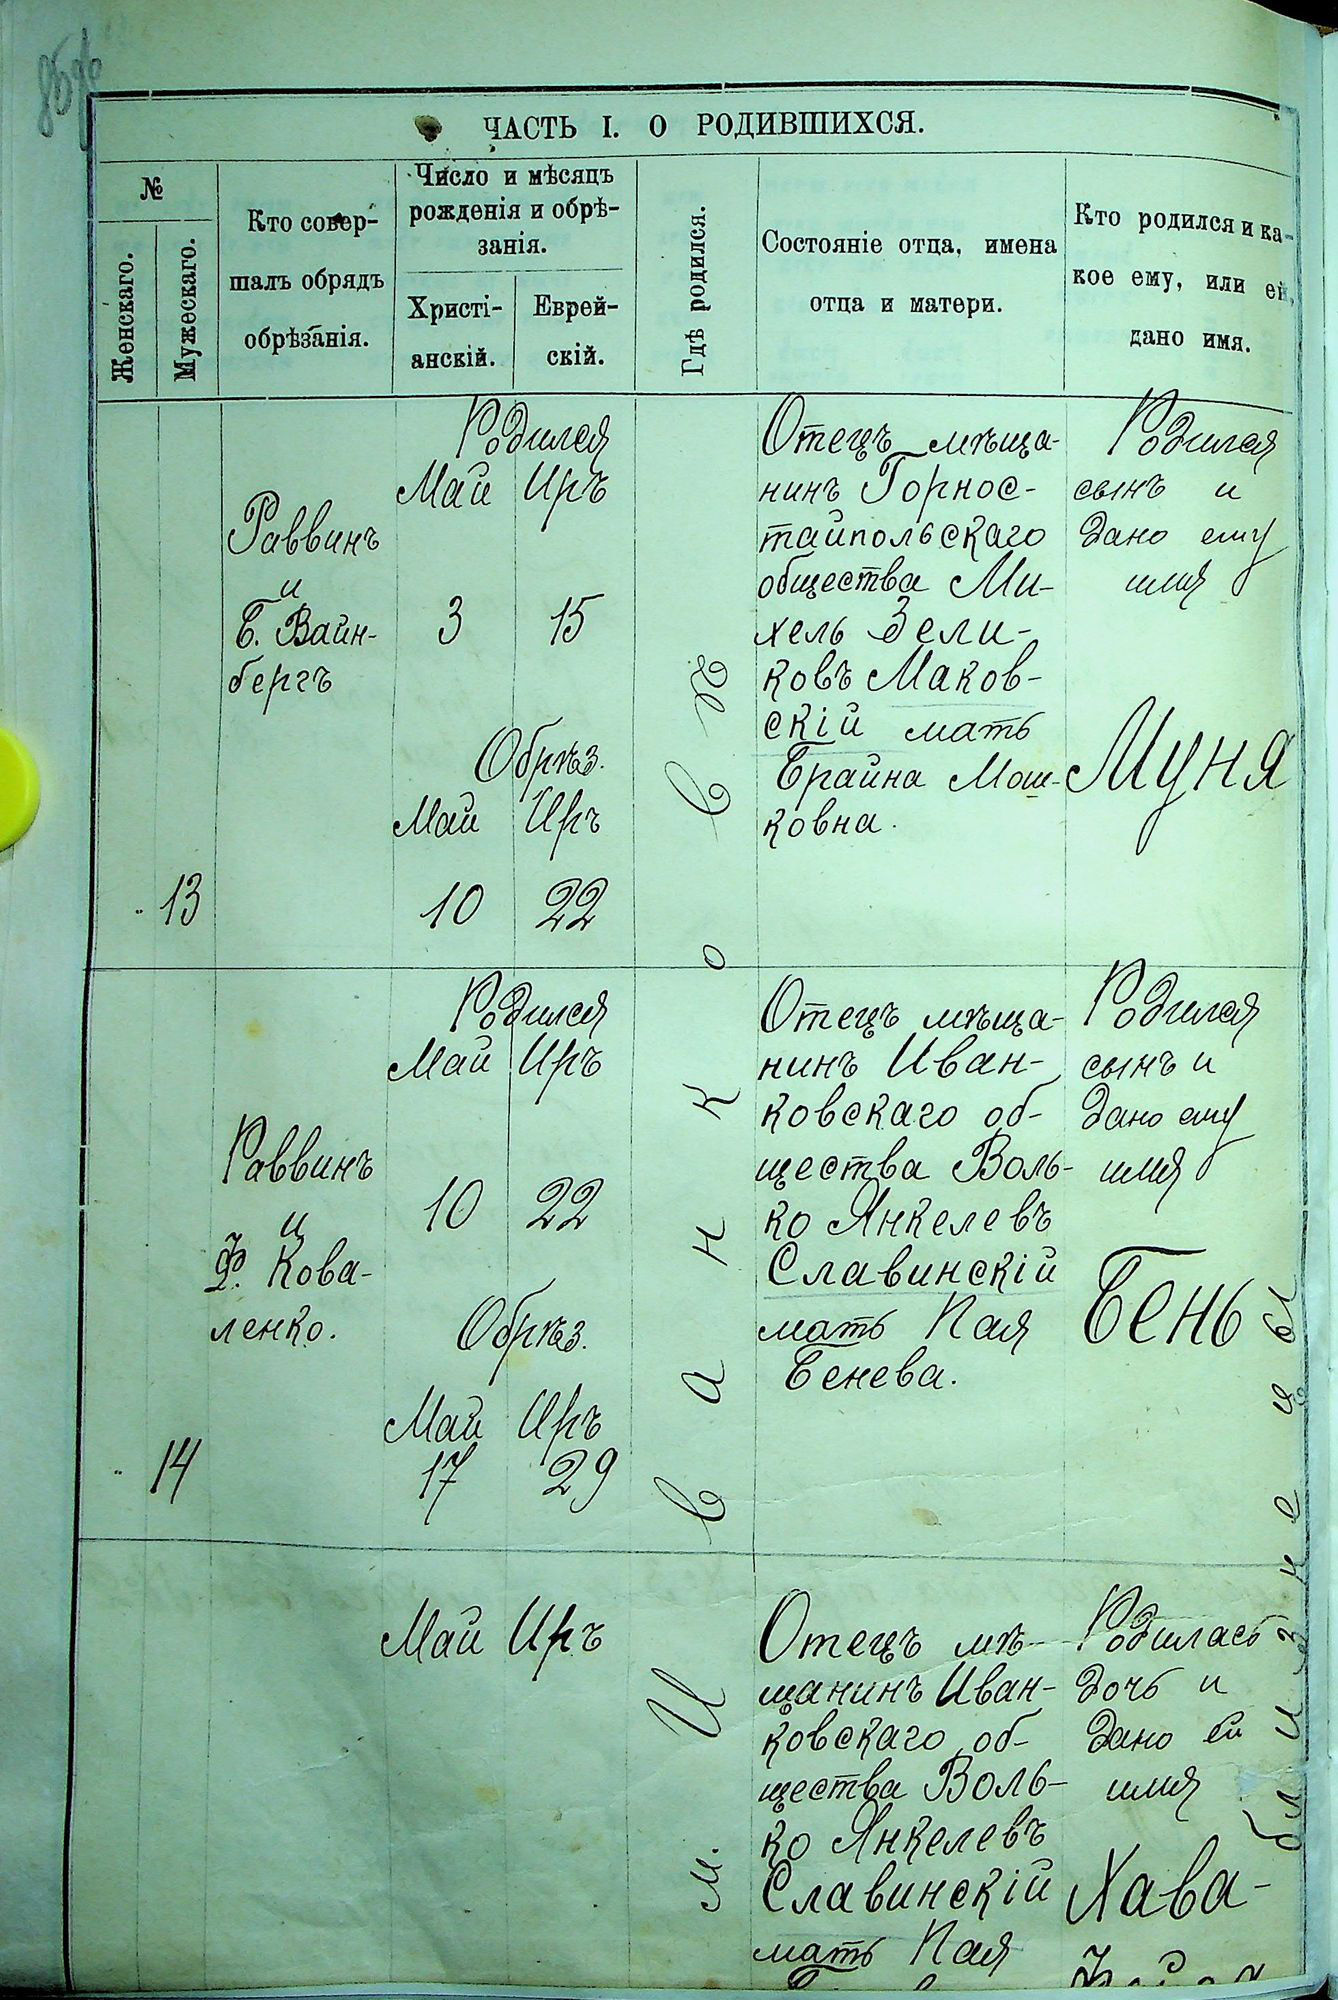 ЧАСТЬ I. О РОДИВШИХСЯ.
№
Женскаго.
Мужескаго.
Кто совер-
шалъ обрядъ
обрѣзанія.
Число и мѣсяцъ
рожденія и обрѣ-
занія.
Христі-
анскій.
Еврей-
скій.
Гдѣ родился.
Состояніе отца, имена
отца и матери.
Кто родился и ка-
кое ему, или ей,
дано имя.
13
Раввинъ
и
Б. Вайн-
бергъ
Родился
Май Иръ
3 15
Обрѣз.
Май Иръ
10 22
м. Иванковѣ
Отецъ мѣща-
нинъ Горнос-
тайпольскаго
общества Ми-
хель Зели-
ковъ Маков-
скій мать
Брайна Мош-
ковна.
Родился
сынъ и
дано ему
имя
Муня
14
Раввинъ
и
Ф. Кова-
ленко.
Родился
Май Иръ
10 22
Обрѣз.
Май Иръ
17 29
Отецъ мѣща-
нинъ Иван-
ковскаго об-
щества Воль-
ко Янкелевъ
Славинскій
мать Пая
Бенева.
Родился
сынъ и
дано ему
имя
Бень
Май Иръ
Отецъ мѣ-
щанинъ Иван-
ковскаго об-
щества Воль-
ко Янкелевъ
Славинскій
мать Пая
Родилась
дочь и
дано ей
имя
Хава-
близнецы